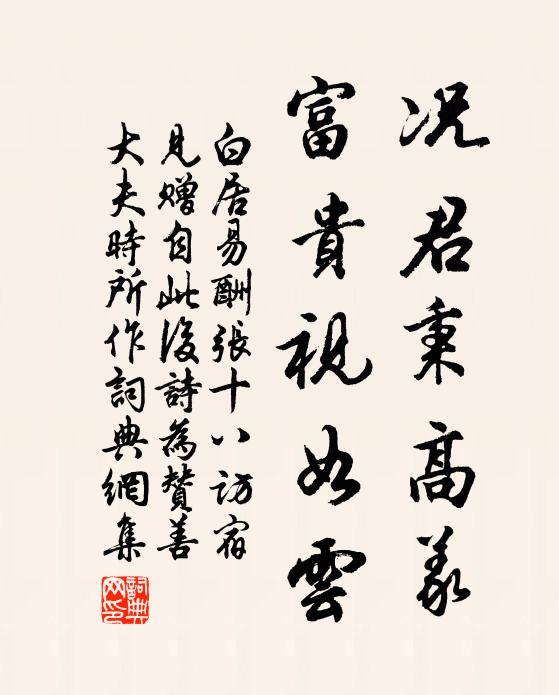 况君秉高義
富貴視如雲
白居易酬張十八訪宿
見贈自此後詩為贊善
大夫時所作詞典網集
詞典網印